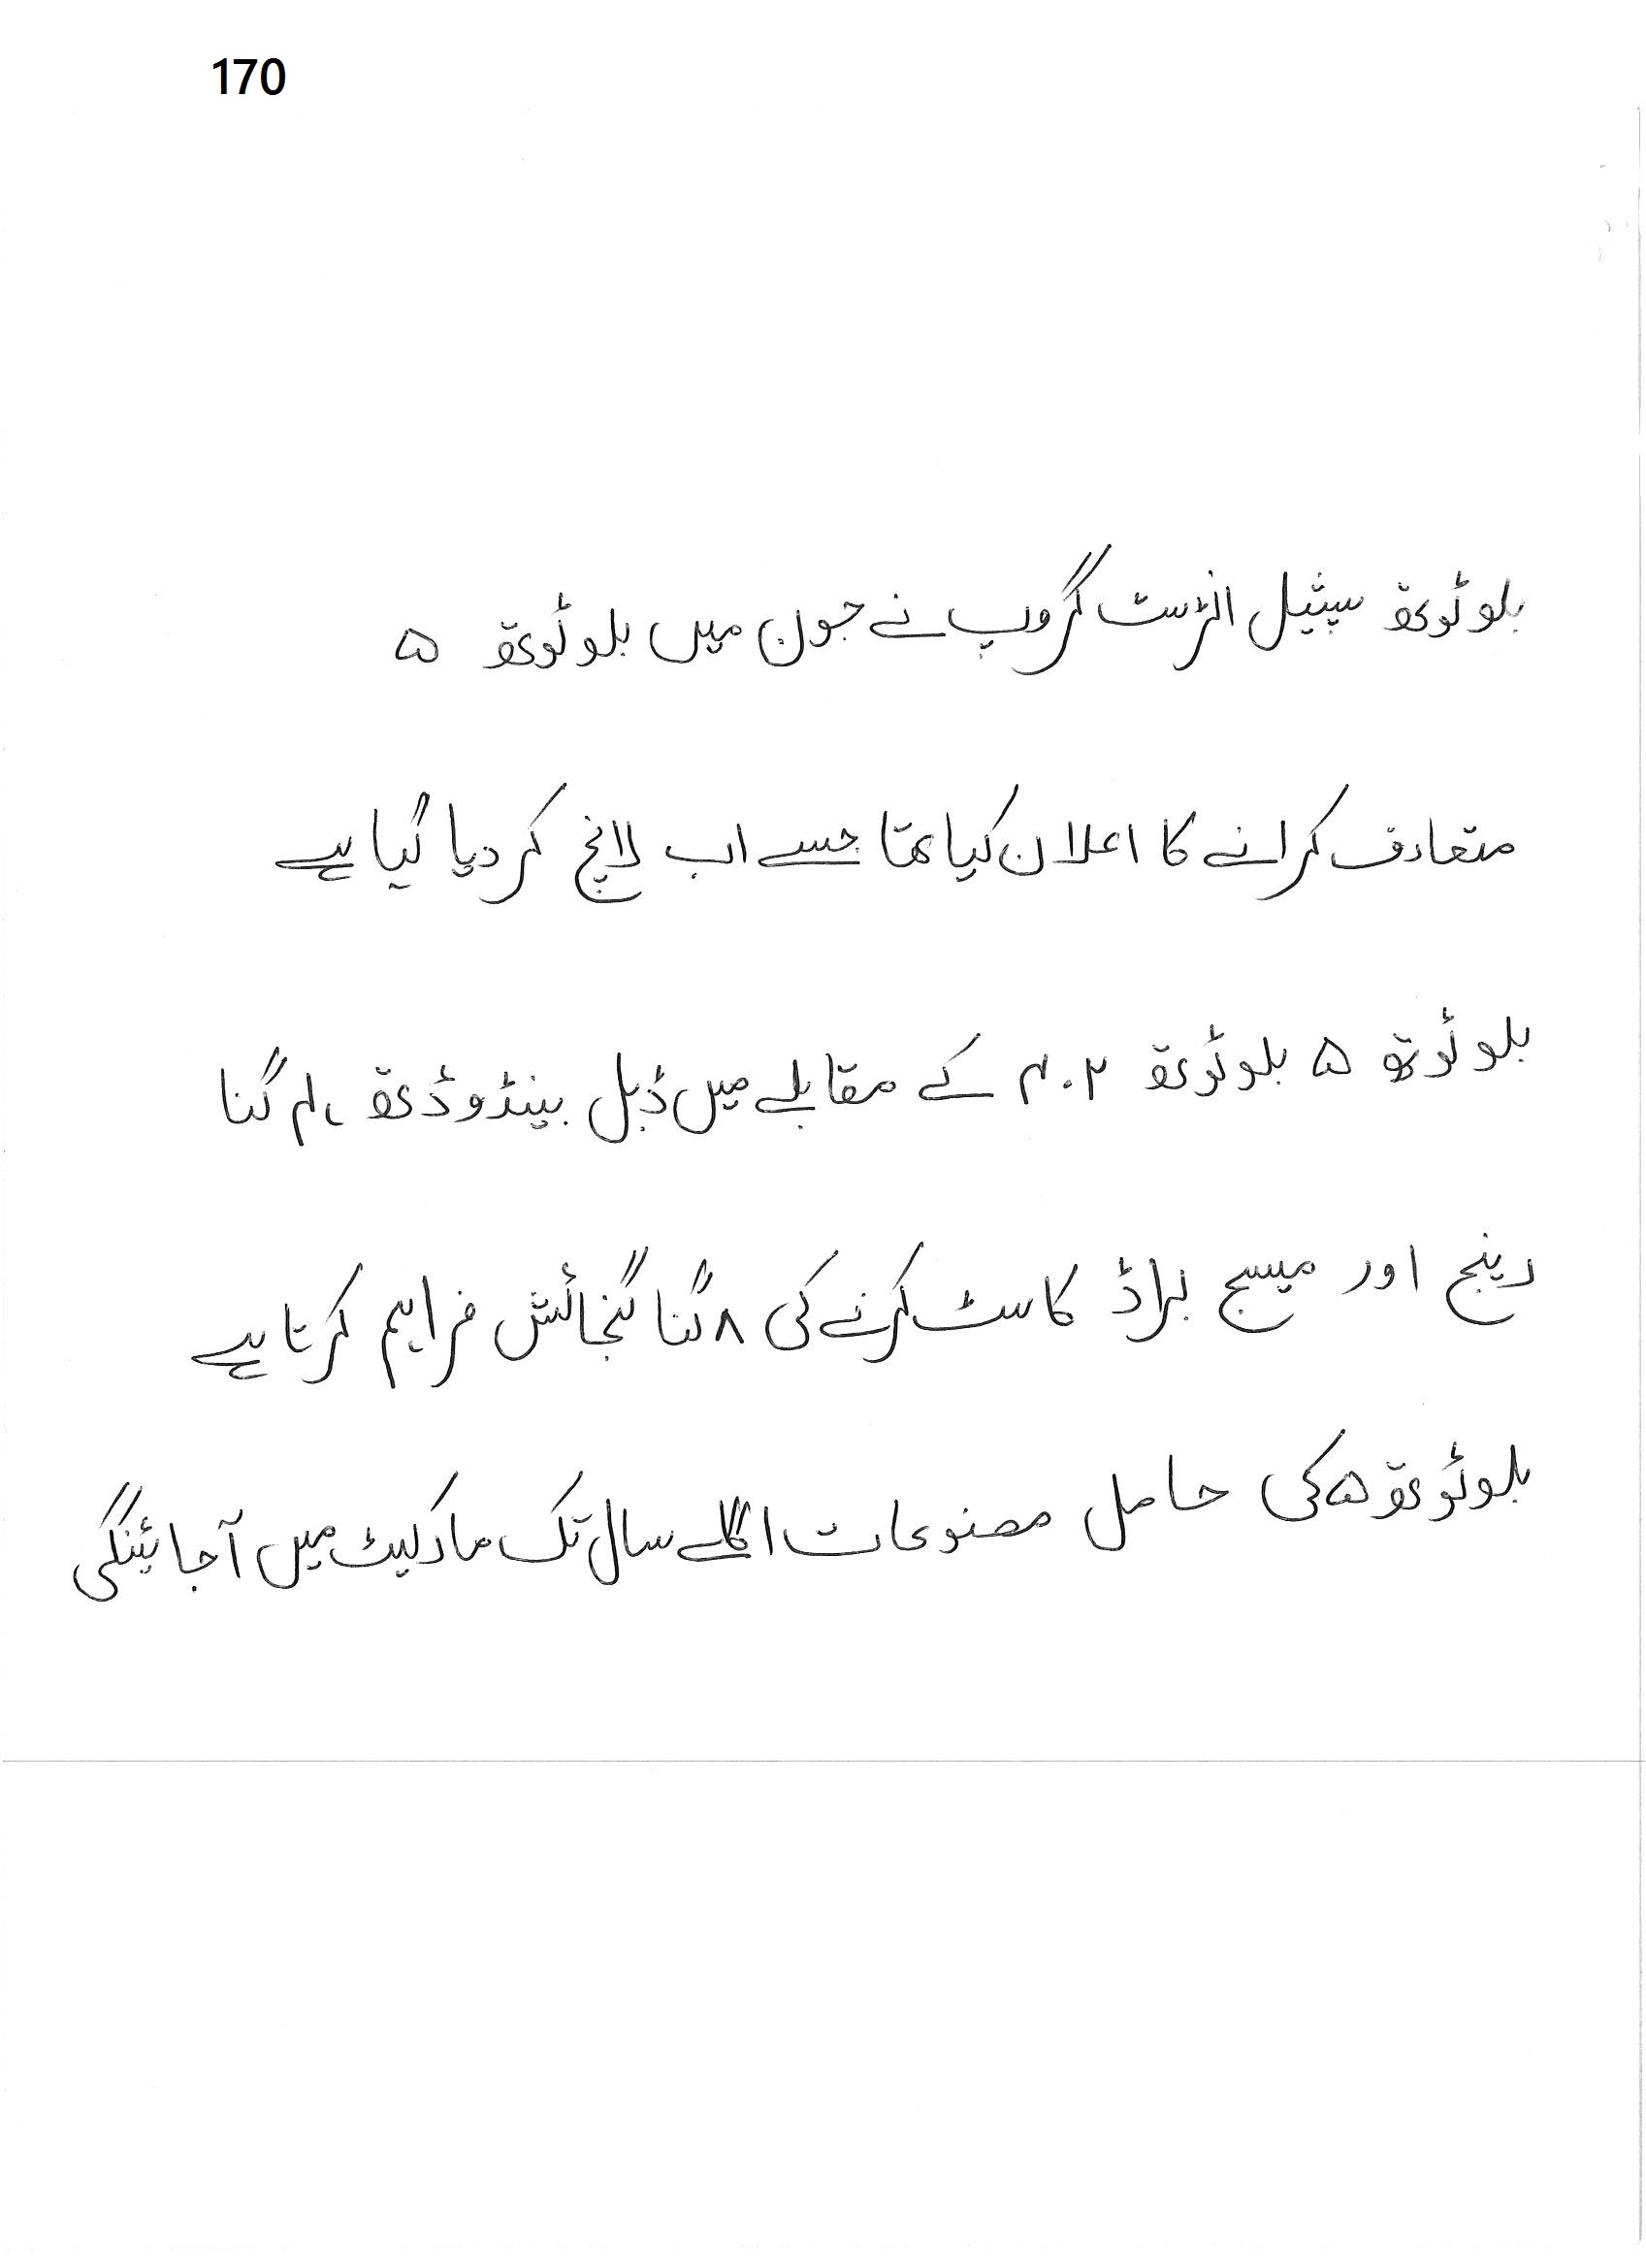 170
بلوٹوتھ سپیشل انٹرسٹ گروپ نے جون میں بلوٹوتھ ۵
متعارف کرانے کا اعلان کیا تھا جسے اب لانچ کر دیا گیا ہے
بلوٹوتھ ۵ بلوٹوتھ ۴.۲ کے مقابلے میں ڈبل بینڈوڈتھ ،۴ گنا
رینج اور میسج براڈ کاسٹ کرنے کی ۸ گنا گنجائش فراہم کرتا ہے
بلوٹوتھ ۵ کی حامل مصنوعات اگلے سال تک مارکیٹ میں آجائینگی